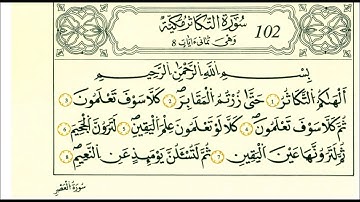 سُورَةُ التَّكَاثُرِ مَكِّيَّة
102
وَهِيَ ثَمَانِيَ ءَايَاتٍ 8
بِسْمِ اللَّهِ الرَّحْمَٰنِ الرَّحِيمِ
أَلْهَاكُمُ التَّكَاثُرُ ١ حَتَّىٰ زُرْتُمُ الْمَقَابِرَ ٢ كَلَّا سَوْفَ تَعْلَمُونَ ٣
ثُمَّ كَلَّا سَوْفَ تَعْلَمُونَ ٤ كَلَّا لَوْ تَعْلَمُونَ عِلْمَ الْيَقِينِ ٥ لَتَرَوُنَّ الْجَحِيمَ ٦
ثُمَّ لَتَرَوُنَّهَا عَيْنَ الْيَقِينِ ٧ ثُمَّ لَتُسْأَلُنَّ يَوْمَئِذٍ عَنِ النَّعِيمِ ٨
سُورَةُ الْعَصْرِ